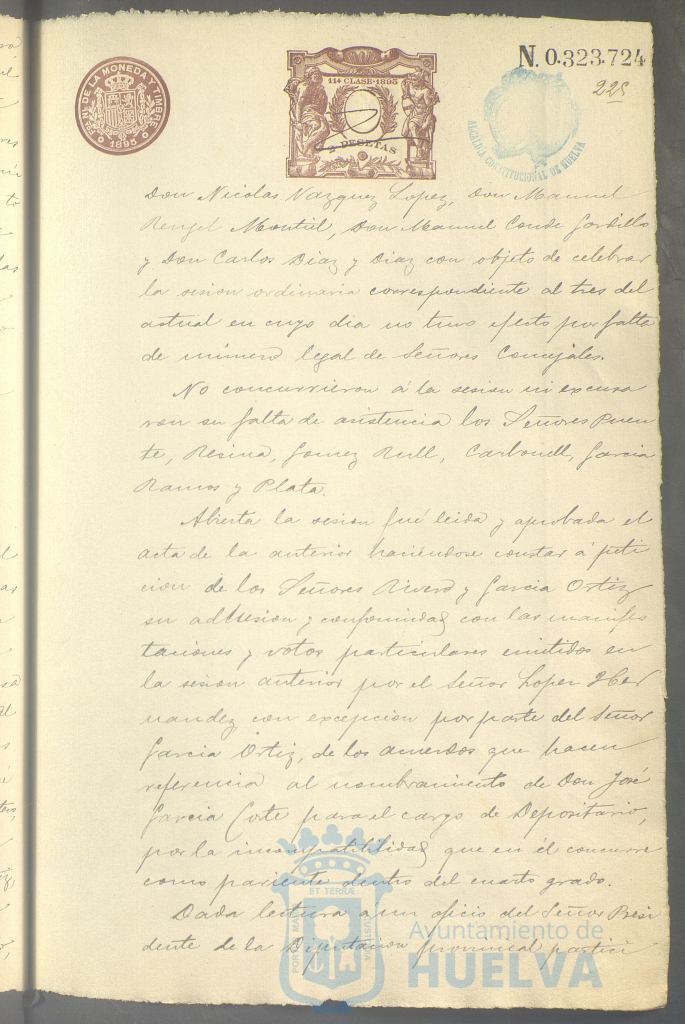 FCA. NL. DE LA MONEDA Y TIMBRE
1895
11ª CLASE-1895
2 PESETAS
N. 0.323.724
225
ALCALDIA CONSTITUCIONAL DE HUELVA
Don Nicolas Vazquez Lopez, Don Manuel
Rengel Montiel, Don Manuel Conde Gordillo
y Don Carlos Diaz y Diaz con objeto de celebrar
la sesion ordinaria correspondiente al tres del
actual en cuyo dia no tuvo efecto por falta
de número legal de Señores Concejales.
No concurrieron á la sesion ni excusa
ron su falta de asistencia los Señores Puen
te, Resina, Gomez Rull, Carbonell, Garcia
Ramos y Plata.
Abierta la sesion fué leida y aprobada el
acta de la anterior haciéndose constar á peti
cion de los Señores Rivero y Garcia Ortiz
su adhesion y conformidad con las manifes
taciones y votos particulares emitidos en
la sesion anterior por el Señor Lopez Her
nandez con excepcion por parte del Señor
Garcia Ortiz, de los acuerdos que hacen
referencia al nombramiento de Don José
Garcia Corte para el cargo de Depositario,
por la incompatibilidad que en él concurre
como pariente dentro del cuarto grado.
Dada lectura a un oficio del Señor Presi
dente de la Diputacion provincial partici
PORTUS MARIS ET TERRAE CUSTODIA
Ayuntamiento de
HUELVA